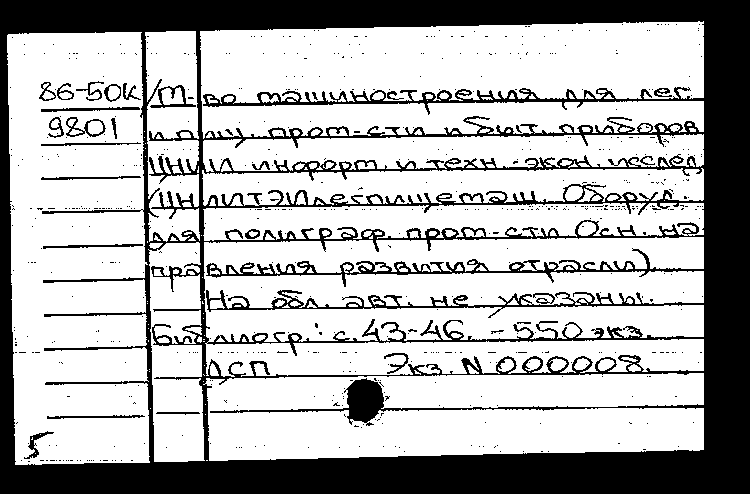 86-50к /М-во машиностроения для лег.
9801 и пищ. пром-сти и быт. приборов
ЦНИИ информ. и техн.-экон. исслед.
(ЦНИИТЭИлегпищемаш. Оборуд.
для полиграф. пром-сти Осн. на-
правления развития отрасли).
На обл. авт. не указаны.
Библиогр.: с. 43-46. - 550 экз.
ДСП. Экз. N 000008.
5